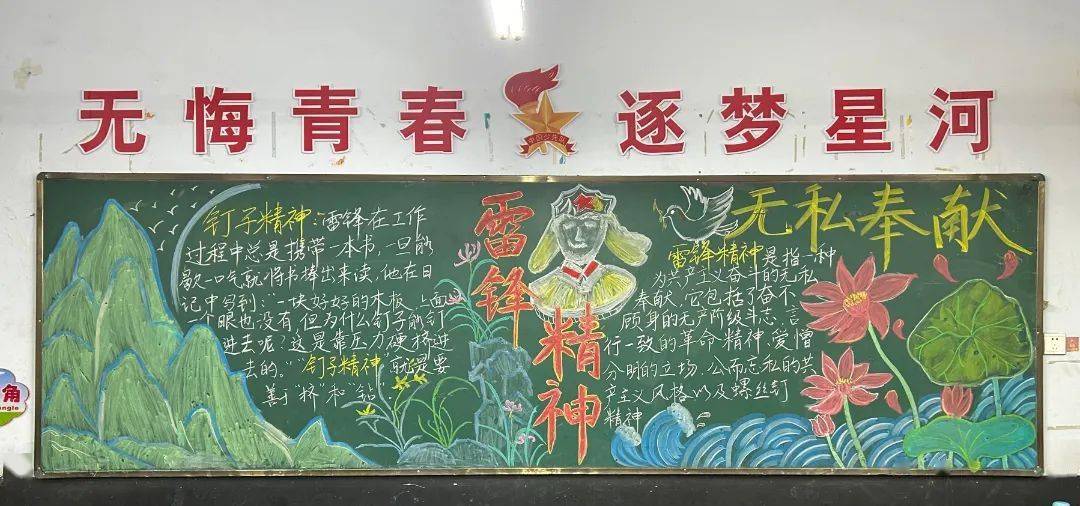 无悔青春
逐梦星河
钉子精神：雷锋在工作
过程中总是携带一本书，一旦能
歇一口气就将书捧出来读，他在日
记中写到：“一块好好的木板，上面
一个眼也没有，但为什么钉子能钉
进去呢？这是靠压力硬挤进
去的。”钉子精神，就是要
善于“挤”和“钻”
雷锋
精神
无私奉献
雷锋精神是指一种
为共产主义奋斗的无私
奉献，它包括了奋不
顾身的无产阶级斗志、言
行一致的革命精神、爱憎
分明的立场、公而忘私的共
产主义风格以及螺丝钉
精神
角